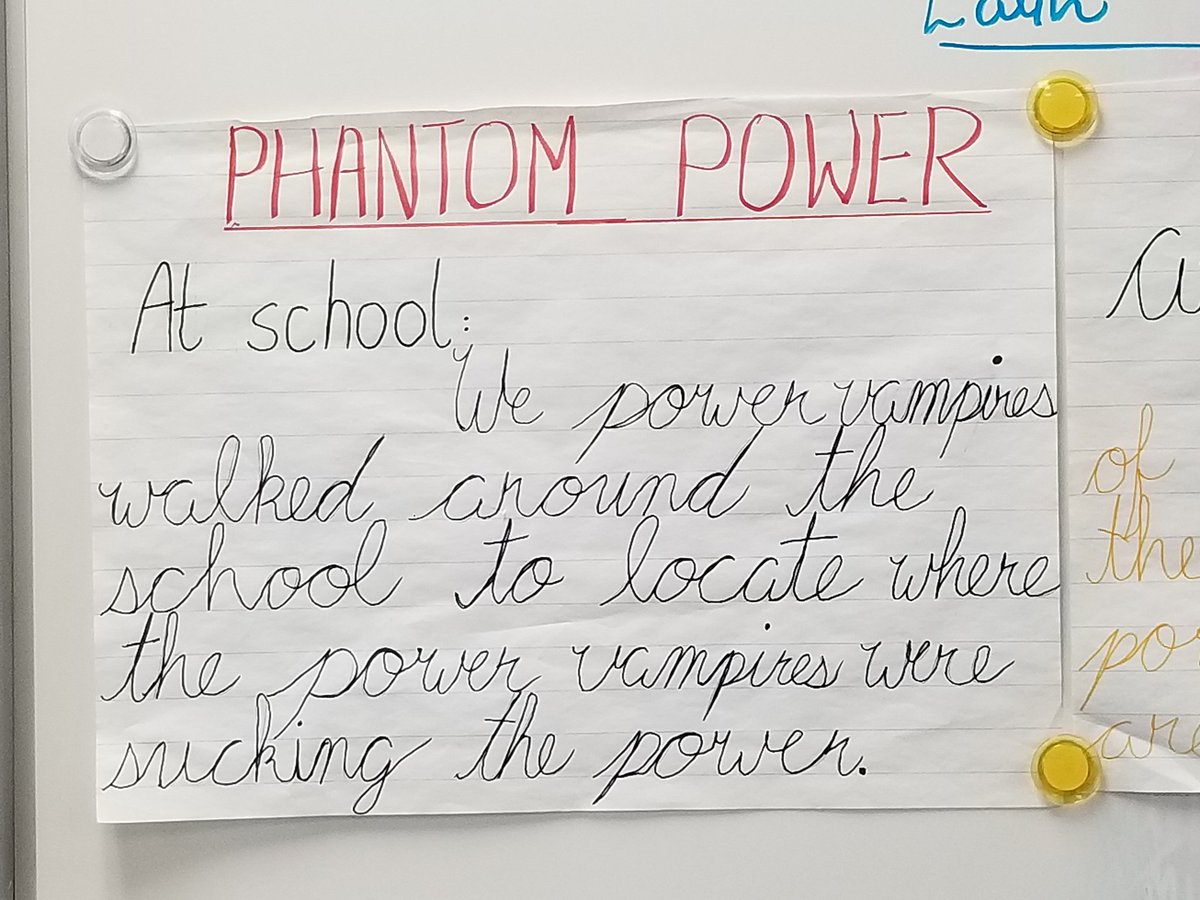 PHANTOM POWER
At school:
We power vampires
walked around the
school to locate where
the power vampires were
sucking the power.
of
the